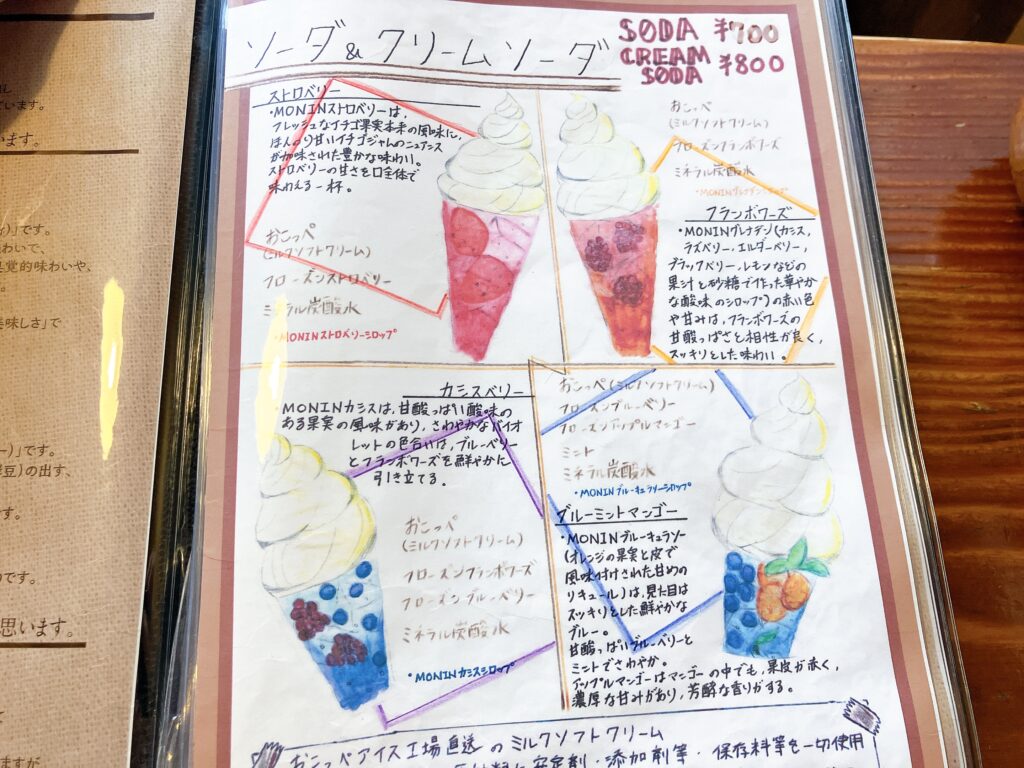 ソーダ&クリームソーダ
SODA ¥700
CREAM
SODA ¥800
ストロベリー
・MONINストロベリーは、
フレッシュなイチゴ果実本来の風味に、
ほんのり甘いイチゴジャムのニュアンス
が加味された豊かな味わい。
ストロベリーの甘さを口全体で
味わえる一杯。
おこっぺ
(ミルクソフトクリーム)
フローズンストロベリー
ミネラル炭酸水
・MONINストロベリーシロップ
おこっぺ
(ミルクソフトクリーム)
フローズンフランボワーズ
ミネラル炭酸水
・MONINグレナデンシロップ
フランボワーズ
・MONINグレナデン(カシス,
ラズベリー,エルダーベリー,
ブラックベリー,レモンなどの
果汁と砂糖で作った華やか
な酸味のシロップ)の赤い色
や甘みは,フランボワーズの
甘酸っぱさと相性が良く,
スッキリとした味わい。
カシスベリー
・MONINカシスは,甘酸っぱい酸味の
ある果実の風味があり,さわやかなバイオ
レットの色合いは,ブルーベリー
とフランボワーズを鮮やかに
引き立てる。
おこっぺ
(ミルクソフトクリーム)
フローズンフランボワーズ
フローズンブルーベリー
ミネラル炭酸水
・MONINカシスシロップ
おこっぺ(ミルクソフトクリーム)
フローズンブルーベリー
フローズンアップルマンゴー
ミント
ミネラル炭酸水
・MONINブルーキュラソーシロップ
ブルーミントマンゴー
・MONINブルーキュラソー
(オレンジの果実と皮で
風味付けされた甘めの
リキュール)は,見た目は
スッキリとした鮮やかな
ブルー。
甘酸っぱいブルーベリーと
ミントでさわやか。
アップルマンゴーはマンゴーの中でも,果皮が赤く,
濃厚な甘みがあり,芳醇な香りがする。
おこっぺアイス工場直送のミルクソフトクリーム
安定剤・添加剤等・保存料等を一切使用
います。
」です。
わいで、
覚的味わいや、
美味しさ」で
ー)」です。
豆)の出す、
す。
のです。
思います。